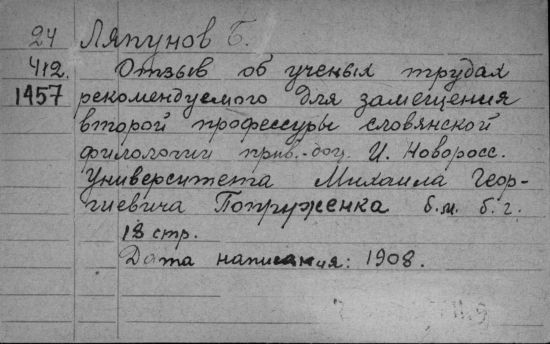 24 Ляпунов Б.
412. Отзыв об ученых трудах
1457 рекомендуемого для замещения
второй профессуры словянской
филологии прив.-доц. И. Новоросс.
Университета Михаила Геор-
гиевича Попруженка б.м. б.г.
18 стр.
Дата написания: 1908.